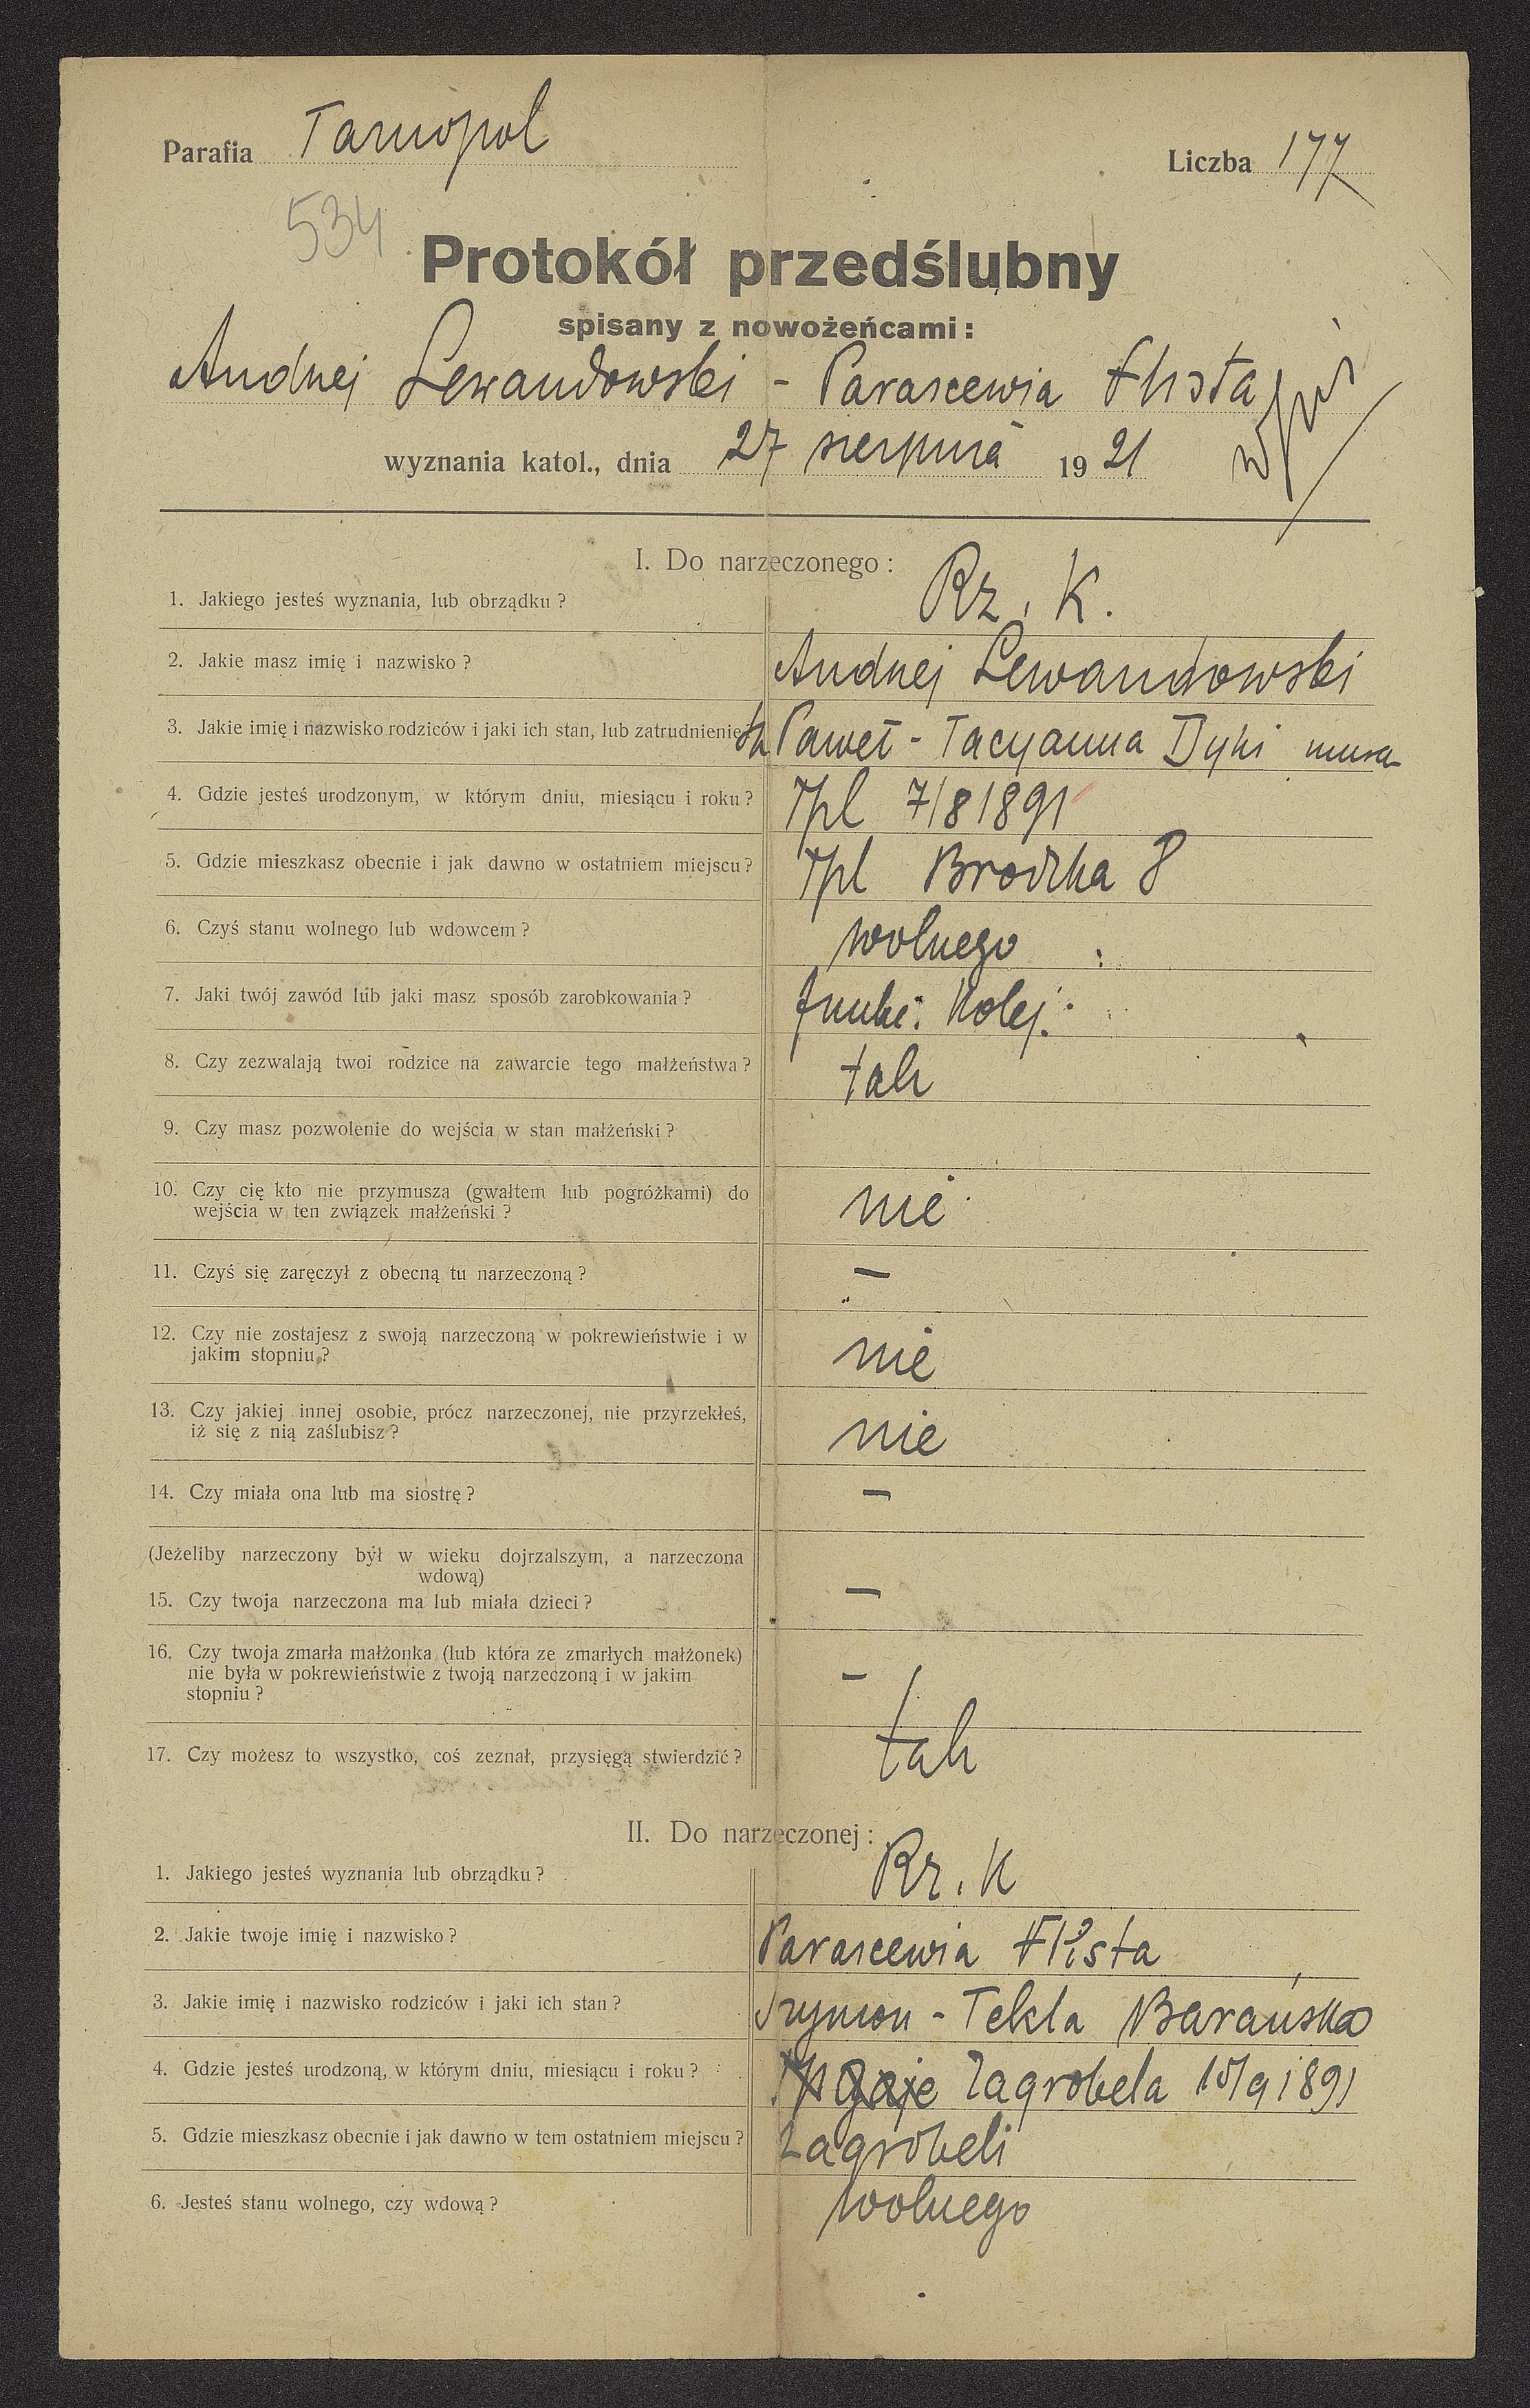 Parafia Tarnopol
Liczba 177
534
Protokół przedślubny
spisany z nowożeńcami:
Andrzej Lewandowski - Parascewia Flista
wyznania katol., dnia 27 sierpnia 1921
I. Do narzeczonego:
1. Jakiego jesteś wyznania, lub obrządku? Rz. K.
2. Jakie masz imię i nazwisko? Andrzej Lewandowski
3. Jakie imię i nazwisko rodziców i jaki ich stan, lub zatrudnienie Paweł - Tacyanna Dyki
4. Gdzie jesteś urodzonym, w którym dniu, miesiącu i roku? Tpl 7/8 1891
5. Gdzie mieszkasz obecnie i jak dawno w ostatniem miejscu? Tpl Brodzka 8
6. Czyś stanu wolnego lub wdowcem? wolnego
7. Jaki twój zawód lub jaki masz sposób zarobkowania? funkc. kolej.
8. Czy zezwalają twoi rodzice na zawarcie tego małżeństwa? tak
9. Czy masz pozwolenie do wejścia w stan małżeński?
10. Czy cię kto nie przymusza (gwałtem lub pogróżkami) do
wejścia w ten związek małżeński? nie
11. Czyś się zaręczył z obecną tu narzeczoną? —
12. Czy nie zostajesz z swoją narzeczoną w pokrewieństwie i w
jakim stopniu? nie
13. Czy jakiej innej osobie, prócz narzeczonej, nie przyrzekłeś,
iż się z nią zaślubisz? nie
14. Czy miała ona lub ma siostrę? —
(Jeżeliby narzeczony był w wieku dojrzalszym, a narzeczona
wdową)
15. Czy twoja narzeczona ma lub miała dzieci? —
16. Czy twoja zmarła małżonka (lub która ze zmarłych małżonek)
nie była w pokrewieństwie z twoją narzeczoną i w jakim
stopniu? —
17. Czy możesz to wszystko, coś zeznał, przysięgą stwierdzić? tak
II. Do narzeczonej:
1. Jakiego jesteś wyznania lub obrządku? Rz. K
2. Jakie twoje imię i nazwisko? Parascewia Flista
3. Jakie imię i nazwisko rodziców i jaki ich stan? Szymon - Tekla Barańska
4. Gdzie jesteś urodzoną, w którym dniu, miesiącu i roku? Zagrobela 15/9 1891
5. Gdzie mieszkasz obecnie i jak dawno w tem ostatniem miejscu? Zagrobeli
6. Jesteś stanu wolnego, czy wdową? wolnego